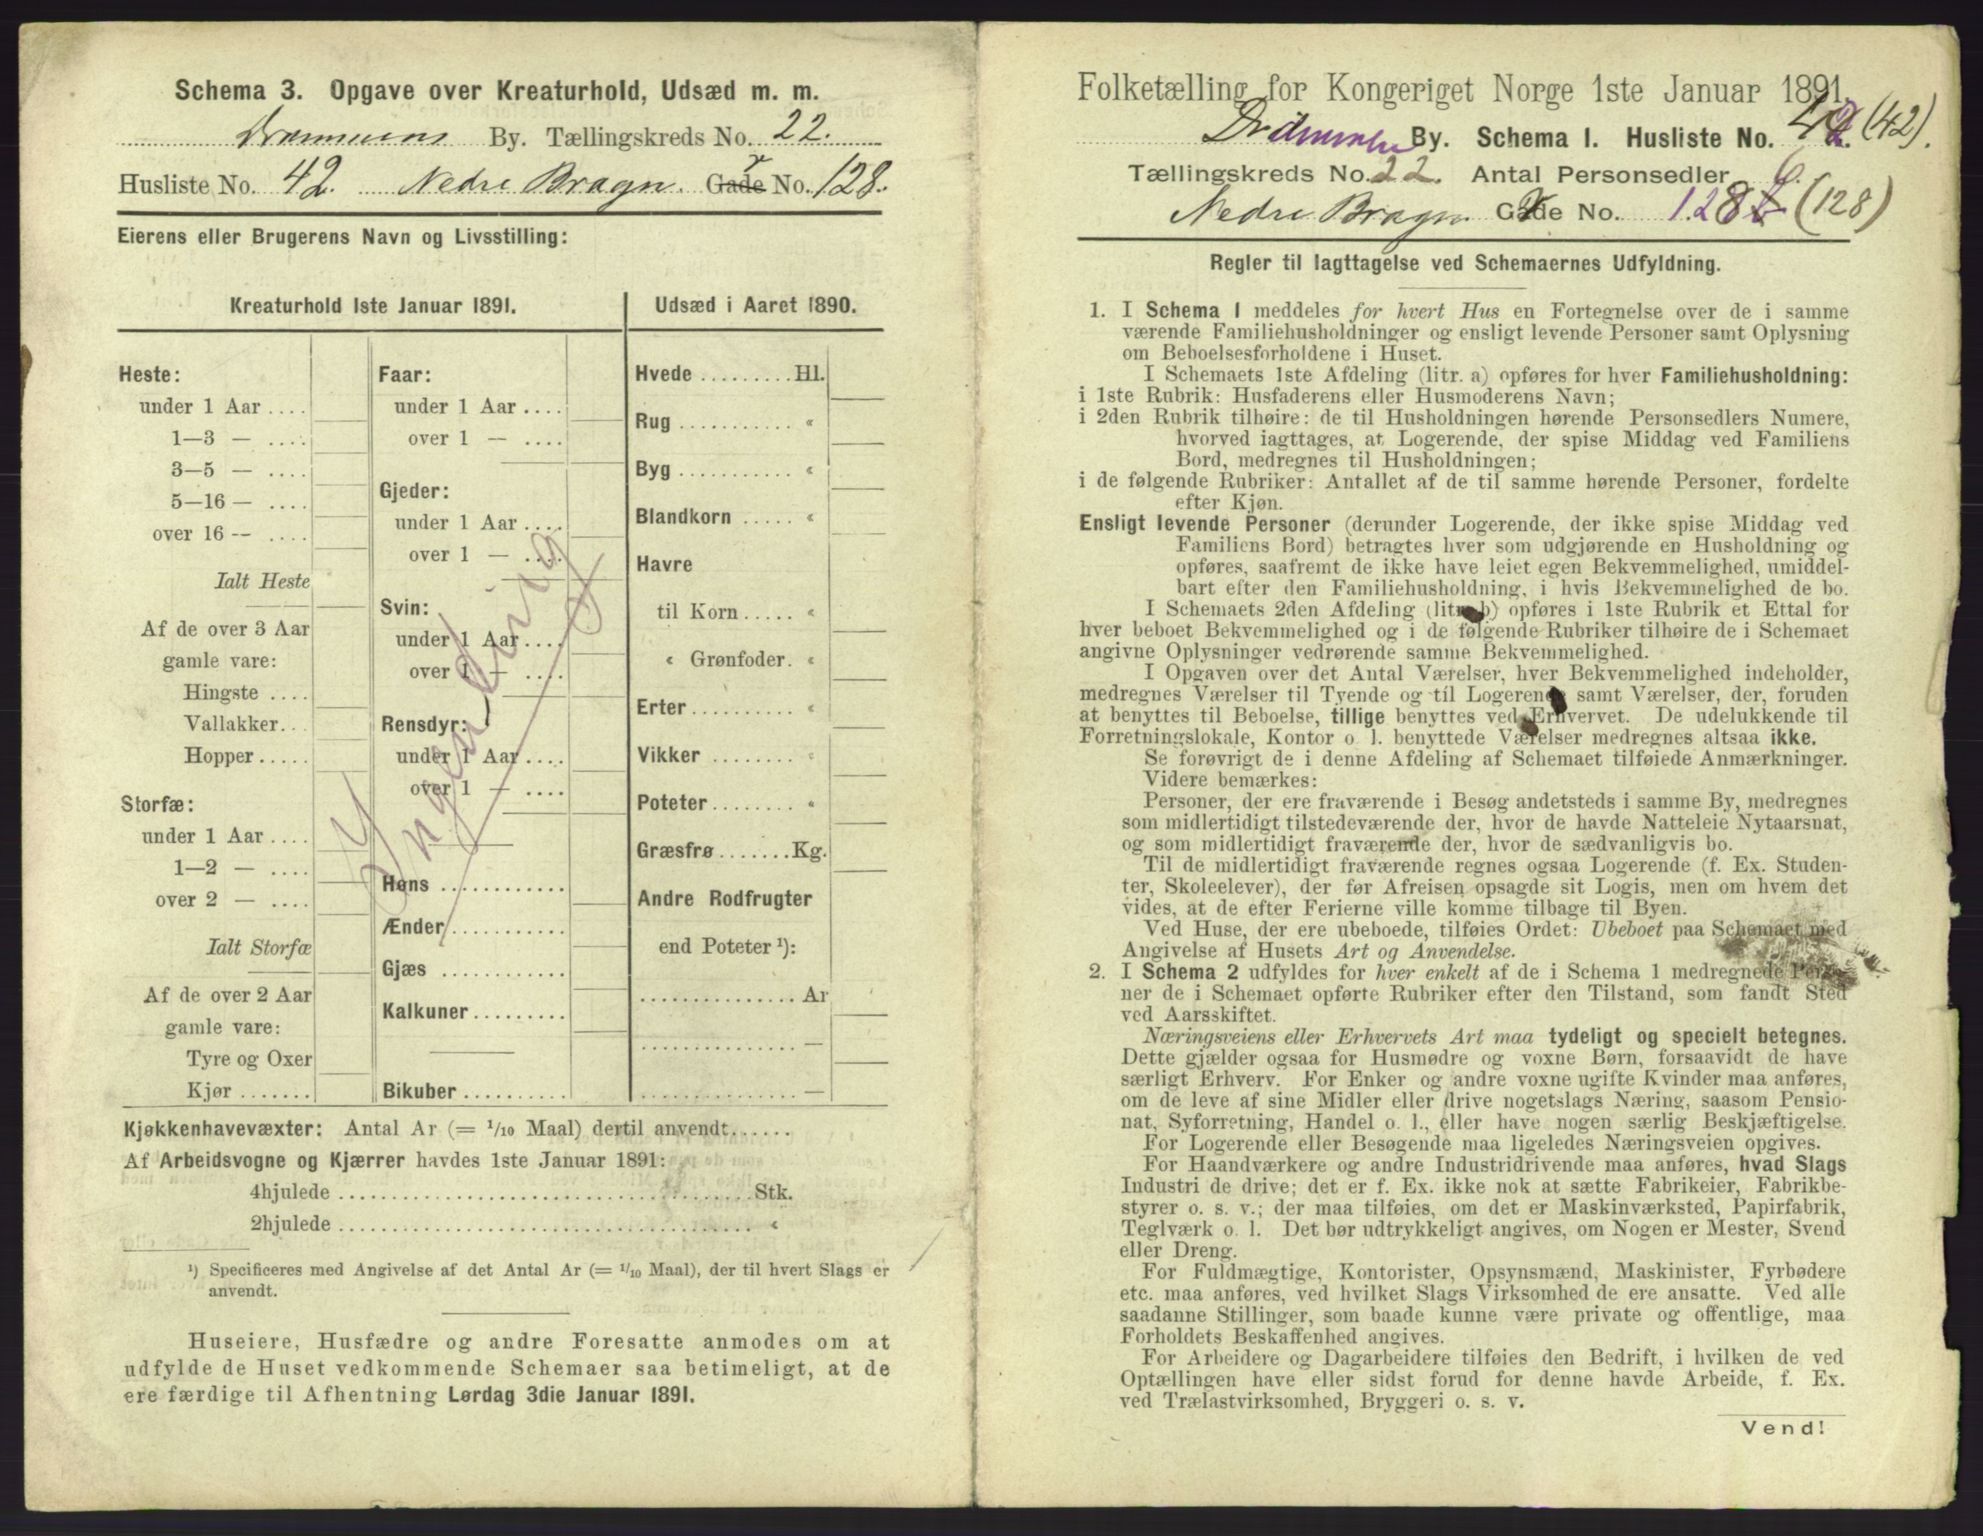 Schema 3. Opgave over Kreaturhold, Udsæd m. m.
Drammens By. Tællingskreds No. 22.
Husliste No. 42. Nedre Bragn. Gade No. 128.
Eierens eller Brugerens Navn og Livsstilling:
Kreaturhold 1ste Januar 1891.
Heste:
under 1 Aar ....
1—3 — ....
3—5 — ....
5—16 — ....
over 16 — ....
Ialt Heste
Af de over 3 Aar
gamle vare:
Hingste ....
Vallakker...
Hopper.....
Storfæ:
under 1 Aar ....
1—2 — ....
over 2 — ....
Ialt Storfæ
Af de over 2 Aar
gamle vare:
Tyre og Oxer
Kjør.......
Faar:
under 1 Aar ....
over 1 — ....
Gjeder:
under 1 Aar ....
over 1 — ....
Svin:
under 1 Aar ....
over 1 — ....
Rensdyr:
under 1 Aar ....
over 1 — ....
Høns ............
Ænder...........
Gjæs ............
Kalkuner.........
Bikuber..........
Ingenting
Udsæd i Aaret 1890.
Hvede .........Hl.
Rug ........... «
Byg ........... «
Blandkorn ..... «
Havre
til Korn..... «
« Grønfoder. «
Erter.......... «
Vikker ........ «
Poteter........ «
Græsfrø.......Kg.
Andre Rodfrugter
end Poteter ¹):
............... Ar
............... —
............... —
Kjøkkenhavevæxter: Antal Ar (= 1/10 Maal) dertil anvendt......
Af Arbeidsvogne og Kjærrer havdes 1ste Januar 1891:
4hjulede ........................................Stk.
2hjulede ........................................ «
¹) Specificeres med Angivelse af det Antal Ar (= 1/10 Maal), der til hvert Slags er
anvendt.
Huseiere, Husfædre og andre Foresatte anmodes om at
udfylde de Huset vedkommende Schemaer saa betimeligt, at de
ere færdige til Afhentning Lørdag 3die Januar 1891.
Folketælling for Kongeriget Norge 1ste Januar 1891.
Drammens By. Schema 1. Husliste No. 42 (42).
Tællingskreds No. 22. Antal Personsedler 6.
Nedre Bragn Gade No. 128 (128)
Regler til Iagttagelse ved Schemaernes Udfyldning.
1. I Schema 1 meddeles for hvert Hus en Fortegnelse over de i samme
værende Familiehusholdninger og ensligt levende Personer samt Oplysning
om Beboelsesforholdene i Huset.
I Schemaets 1ste Afdeling (litr. a) opføres for hver Familiehusholdning:
i 1ste Rubrik: Husfaderens eller Husmoderens Navn;
i 2den Rubrik tilhøire: de til Husholdningen hørende Personsedlers Numere,
hvorved iagttages, at Logerende, der spise Middag ved Familiens
Bord, medregnes til Husholdningen;
i de følgende Rubriker: Antallet af de til samme hørende Personer, fordelte
efter Kjøn.
Ensligt levende Personer (derunder Logerende, der ikke spise Middag ved
Familiens Bord) betragtes hver som udgjørende en Husholdning og
opføres, saafremt de ikke have leiet egen Bekvemmelighed, umiddel-
bart efter den Familiehusholdning, i hvis Bekvemmelighed de bo.
I Schemaets 2den Afdeling (litr. b) opføres i 1ste Rubrik et Ettal for
hver beboet Bekvemmelighed og i de følgende Rubriker tilhøire de i Schemaet
angivne Oplysninger vedrørende samme Bekvemmelighed.
I Opgaven over det Antal Værelser, hver Bekvemmelighed indeholder,
medregnes Værelser til Tyende og til Logerende samt Værelser, der, foruden
at benyttes til Beboelse, tillige benyttes ved Erhvervet. De udelukkende til
Forretningslokale, Kontor o. l. benyttede Værelser medregnes altsaa ikke.
Se forøvrigt de i denne Afdeling af Schemaet tilføiede Anmærkninger.
Videre bemærkes:
Personer, der ere fraværende i Besøg andetsteds i samme By, medregnes
som midlertidigt tilstedeværende der, hvor de havde Natteleie Nytaarsnat,
og som midlertidigt fraværende der, hvor de sædvanligvis bo.
Til de midlertidigt fraværende regnes ogsaa Logerende (f. Ex. Studen-
ter, Skoleelever), der før Afreisen opsagde sit Logis, men om hvem det
vides, at de efter Ferierne ville komme tilbage til Byen.
Ved Huse, der ere ubeboede, tilføies Ordet: Ubeboet paa Schemaet med
Angivelse af Husets Art og Anvendelse.
2. I Schema 2 udfyldes for hver enkelt af de i Schema 1 medregnede Perso-
ner de i Schemaet opførte Rubriker efter den Tilstand, som fandt Sted
ved Aarsskiftet.
Næringsveiens eller Erhvervets Art maa tydeligt og specielt betegnes.
Dette gjælder ogsaa for Husmødre og voxne Børn, forsaavidt de have
særligt Erhverv. For Enker og andre voxne ugifte Kvinder maa anføres,
om de leve af sine Midler eller drive nogetslags Næring, saasom Pensio-
nat, Syforretning, Handel o. l., eller have nogen særlig Beskjæftigelse.
For Logerende eller Besøgende maa ligeledes Næringsveien opgives.
For Haandværkere og andre Industridrivende maa anføres, hvad Slags
Industri de drive; det er f. Ex. ikke nok at sætte Fabrikeier, Fabrikbe-
styrer o. s. v.; der maa tilføies, om det er Maskinværksted, Papirfabrik,
Teglværk o. l. Det bør udtrykkeligt angives, om Nogen er Mester, Svend
eller Dreng.
For Fuldmægtige, Kontorister, Opsynsmænd, Maskinister, Fyrbødere
etc. maa anføres, ved hvilket Slags Virksomhed de ere ansatte. Ved alle
saadanne Stillinger, som baade kunne være private og offentlige, maa
Forholdets Beskaffenhed angives.
For Arbeidere og Dagarbeidere tilføies den Bedrift, i hvilken de ved
Optællingen have eller sidst forud for denne havde Arbeide, f. Ex.
ved Trælastvirksomhed, Bryggeri o. s. v.
Vend!